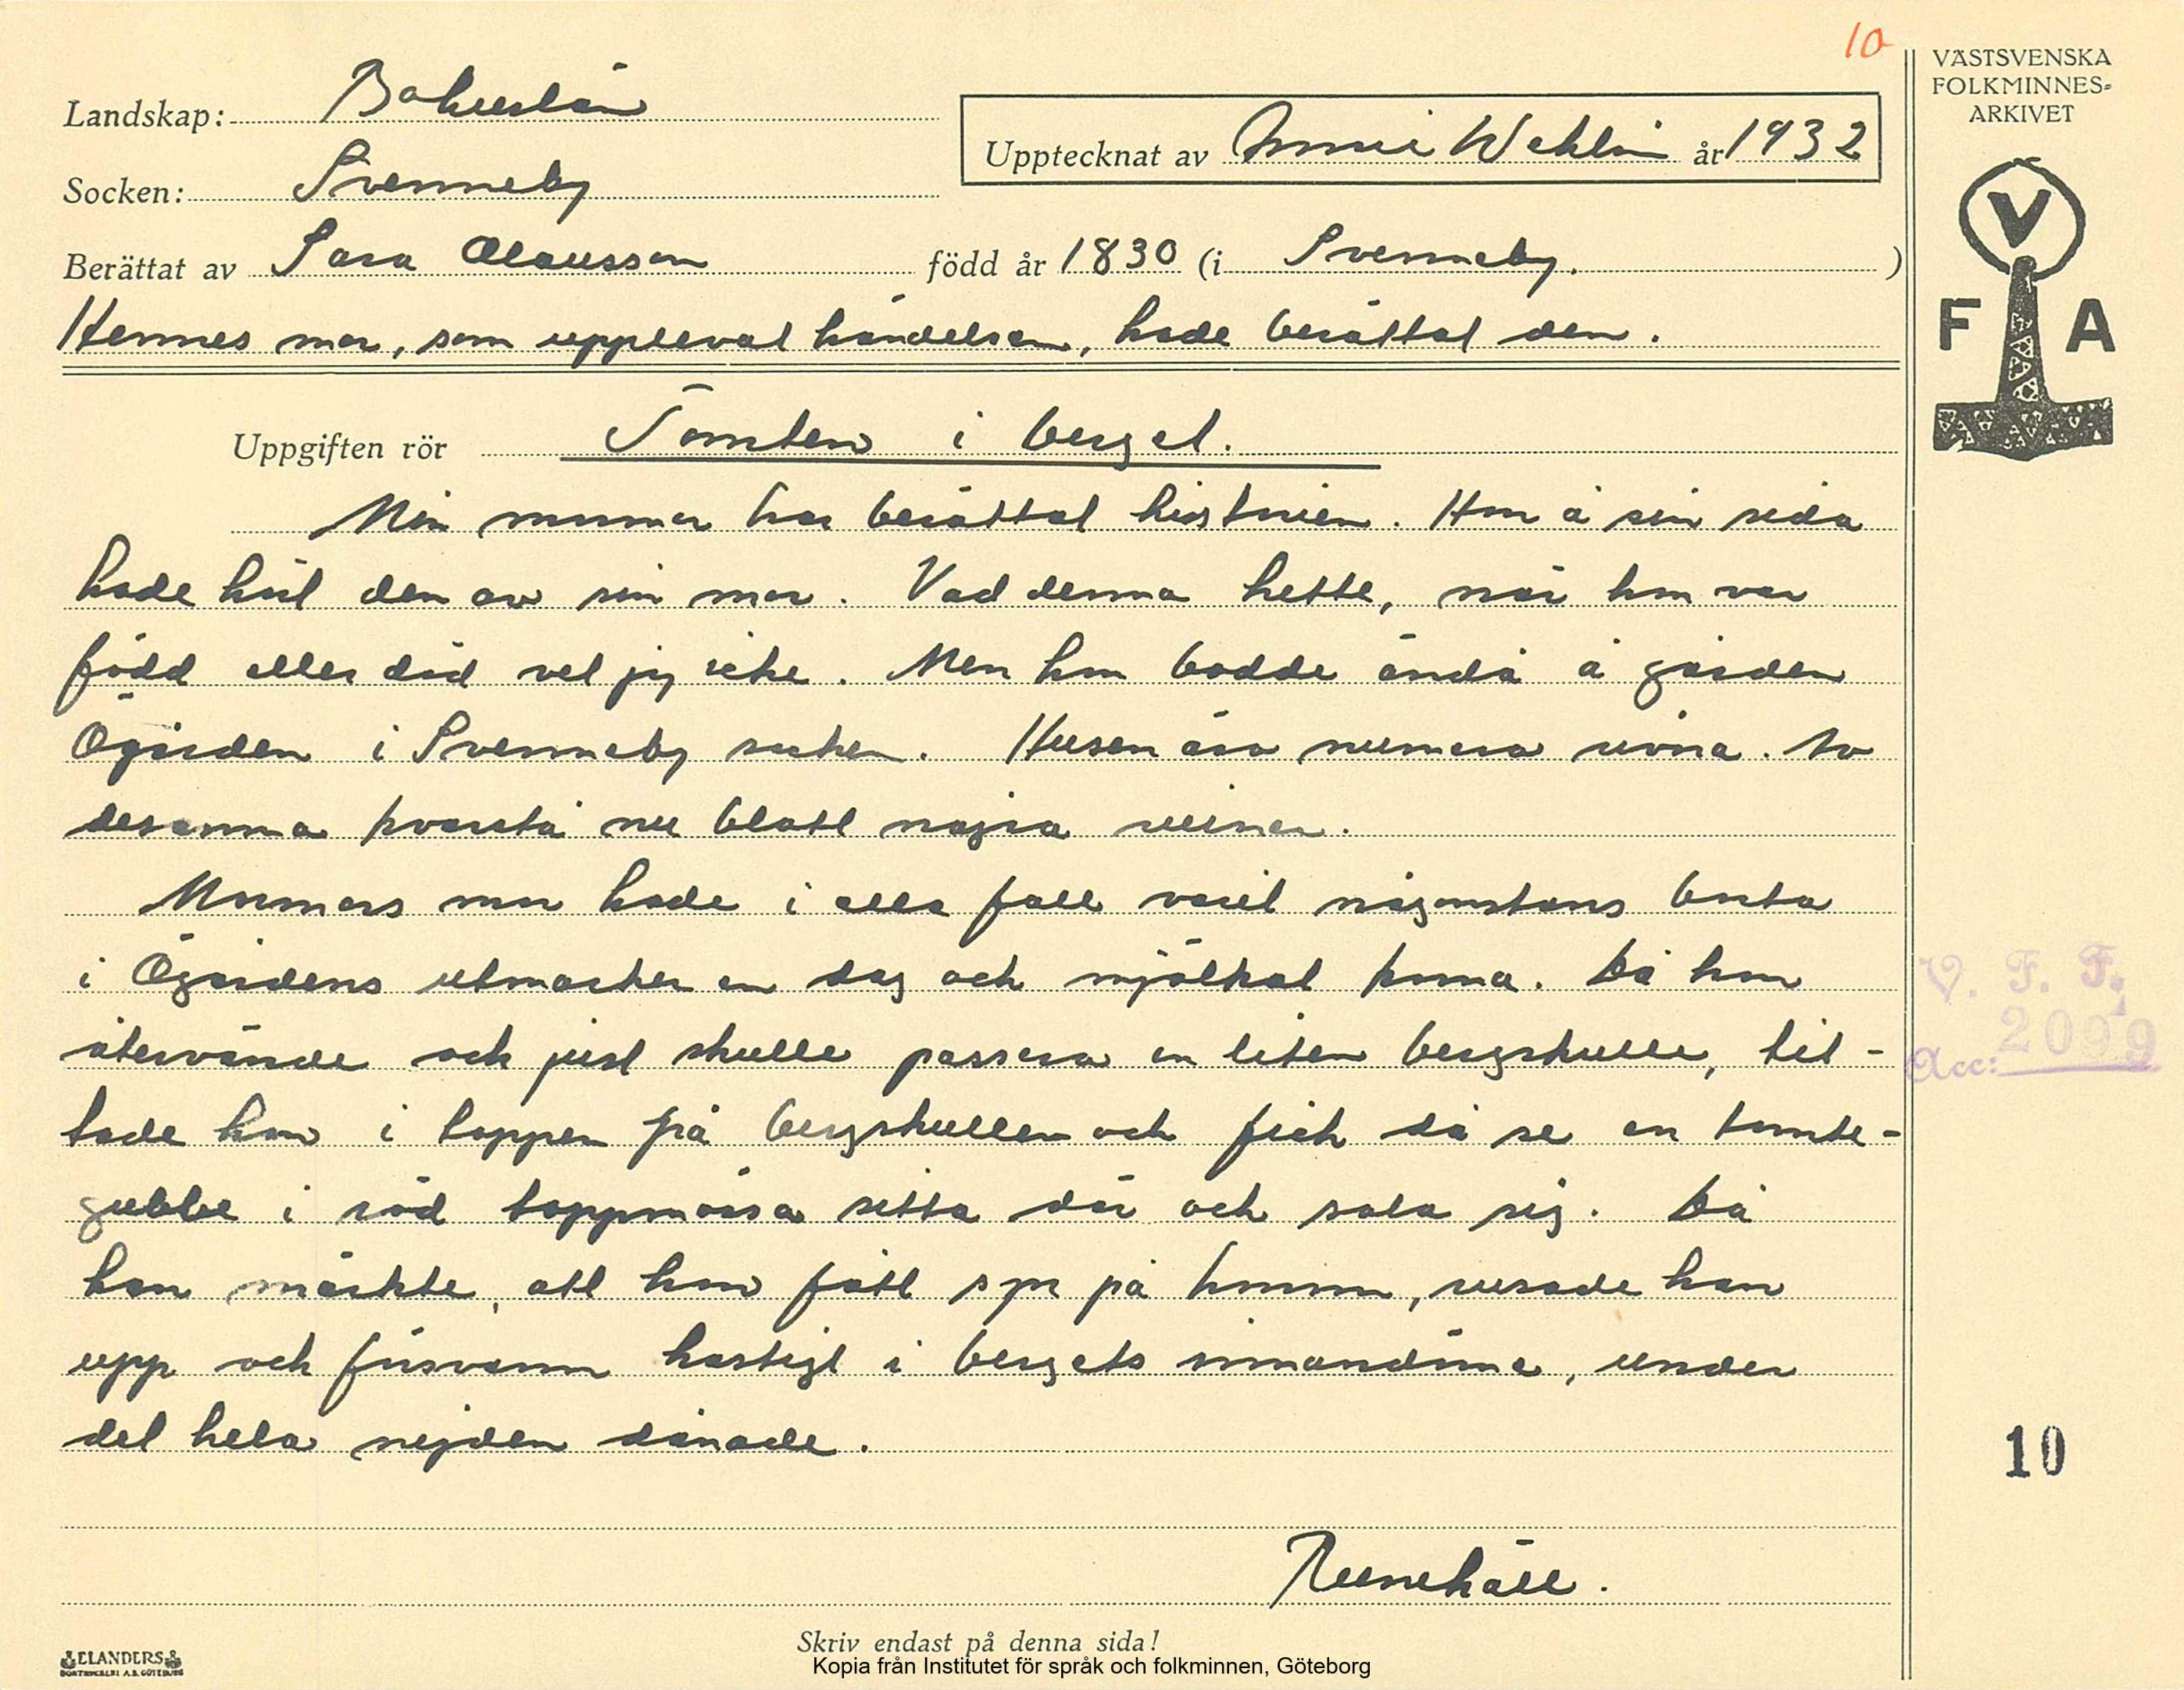 10
VÄSTSVENSKA
FOLKMINNES-
ARKIVET
Landskap: Bohuslän
Upptecknat av Annie Wahlin år 1932
Socken: Svenneby
Berättat av Sara Olausson född år 1830 (i Svenneby.)
Hennes mor, som upplevat händelsen, hade berättat den.
V
F A
Uppgiften rör Tomten i berget.
Min mormor har berättat historien. Hon å sin sida
hade hört den av sin mor. Vad denna hette, när hon var
född eller död vet jag icke. Men hon bodde ändå å gården
Ögården i Svenneby socken. Husen äro numera rivna. Av
desamma kvarstå nu blott några ruiner.
Mormors mor hade i alla fall varit någonstans borta
i Ögårdens utmarker en dag och mjölkat korna. Då hon
återvände och just skulle passera en liten bergskulle, tit-
tade hon i toppen på bergskullen och fick då se en tomte-
gubbe i röd toppmössa sitta där och sola sig. Då
han märkte, att hon fått syn på honom, rusade han
upp och försvann hastigt i bergets innandöme, under
det hela nejden dånade.
V. F. F.
Acc: 2099
10
Runehäll.
Skriv endast på denna sida!
ELANDERS
BOKTRYCKERI A.B. GÖTEBORG
Kopia från Institutet för språk och folkminnen, Göteborg